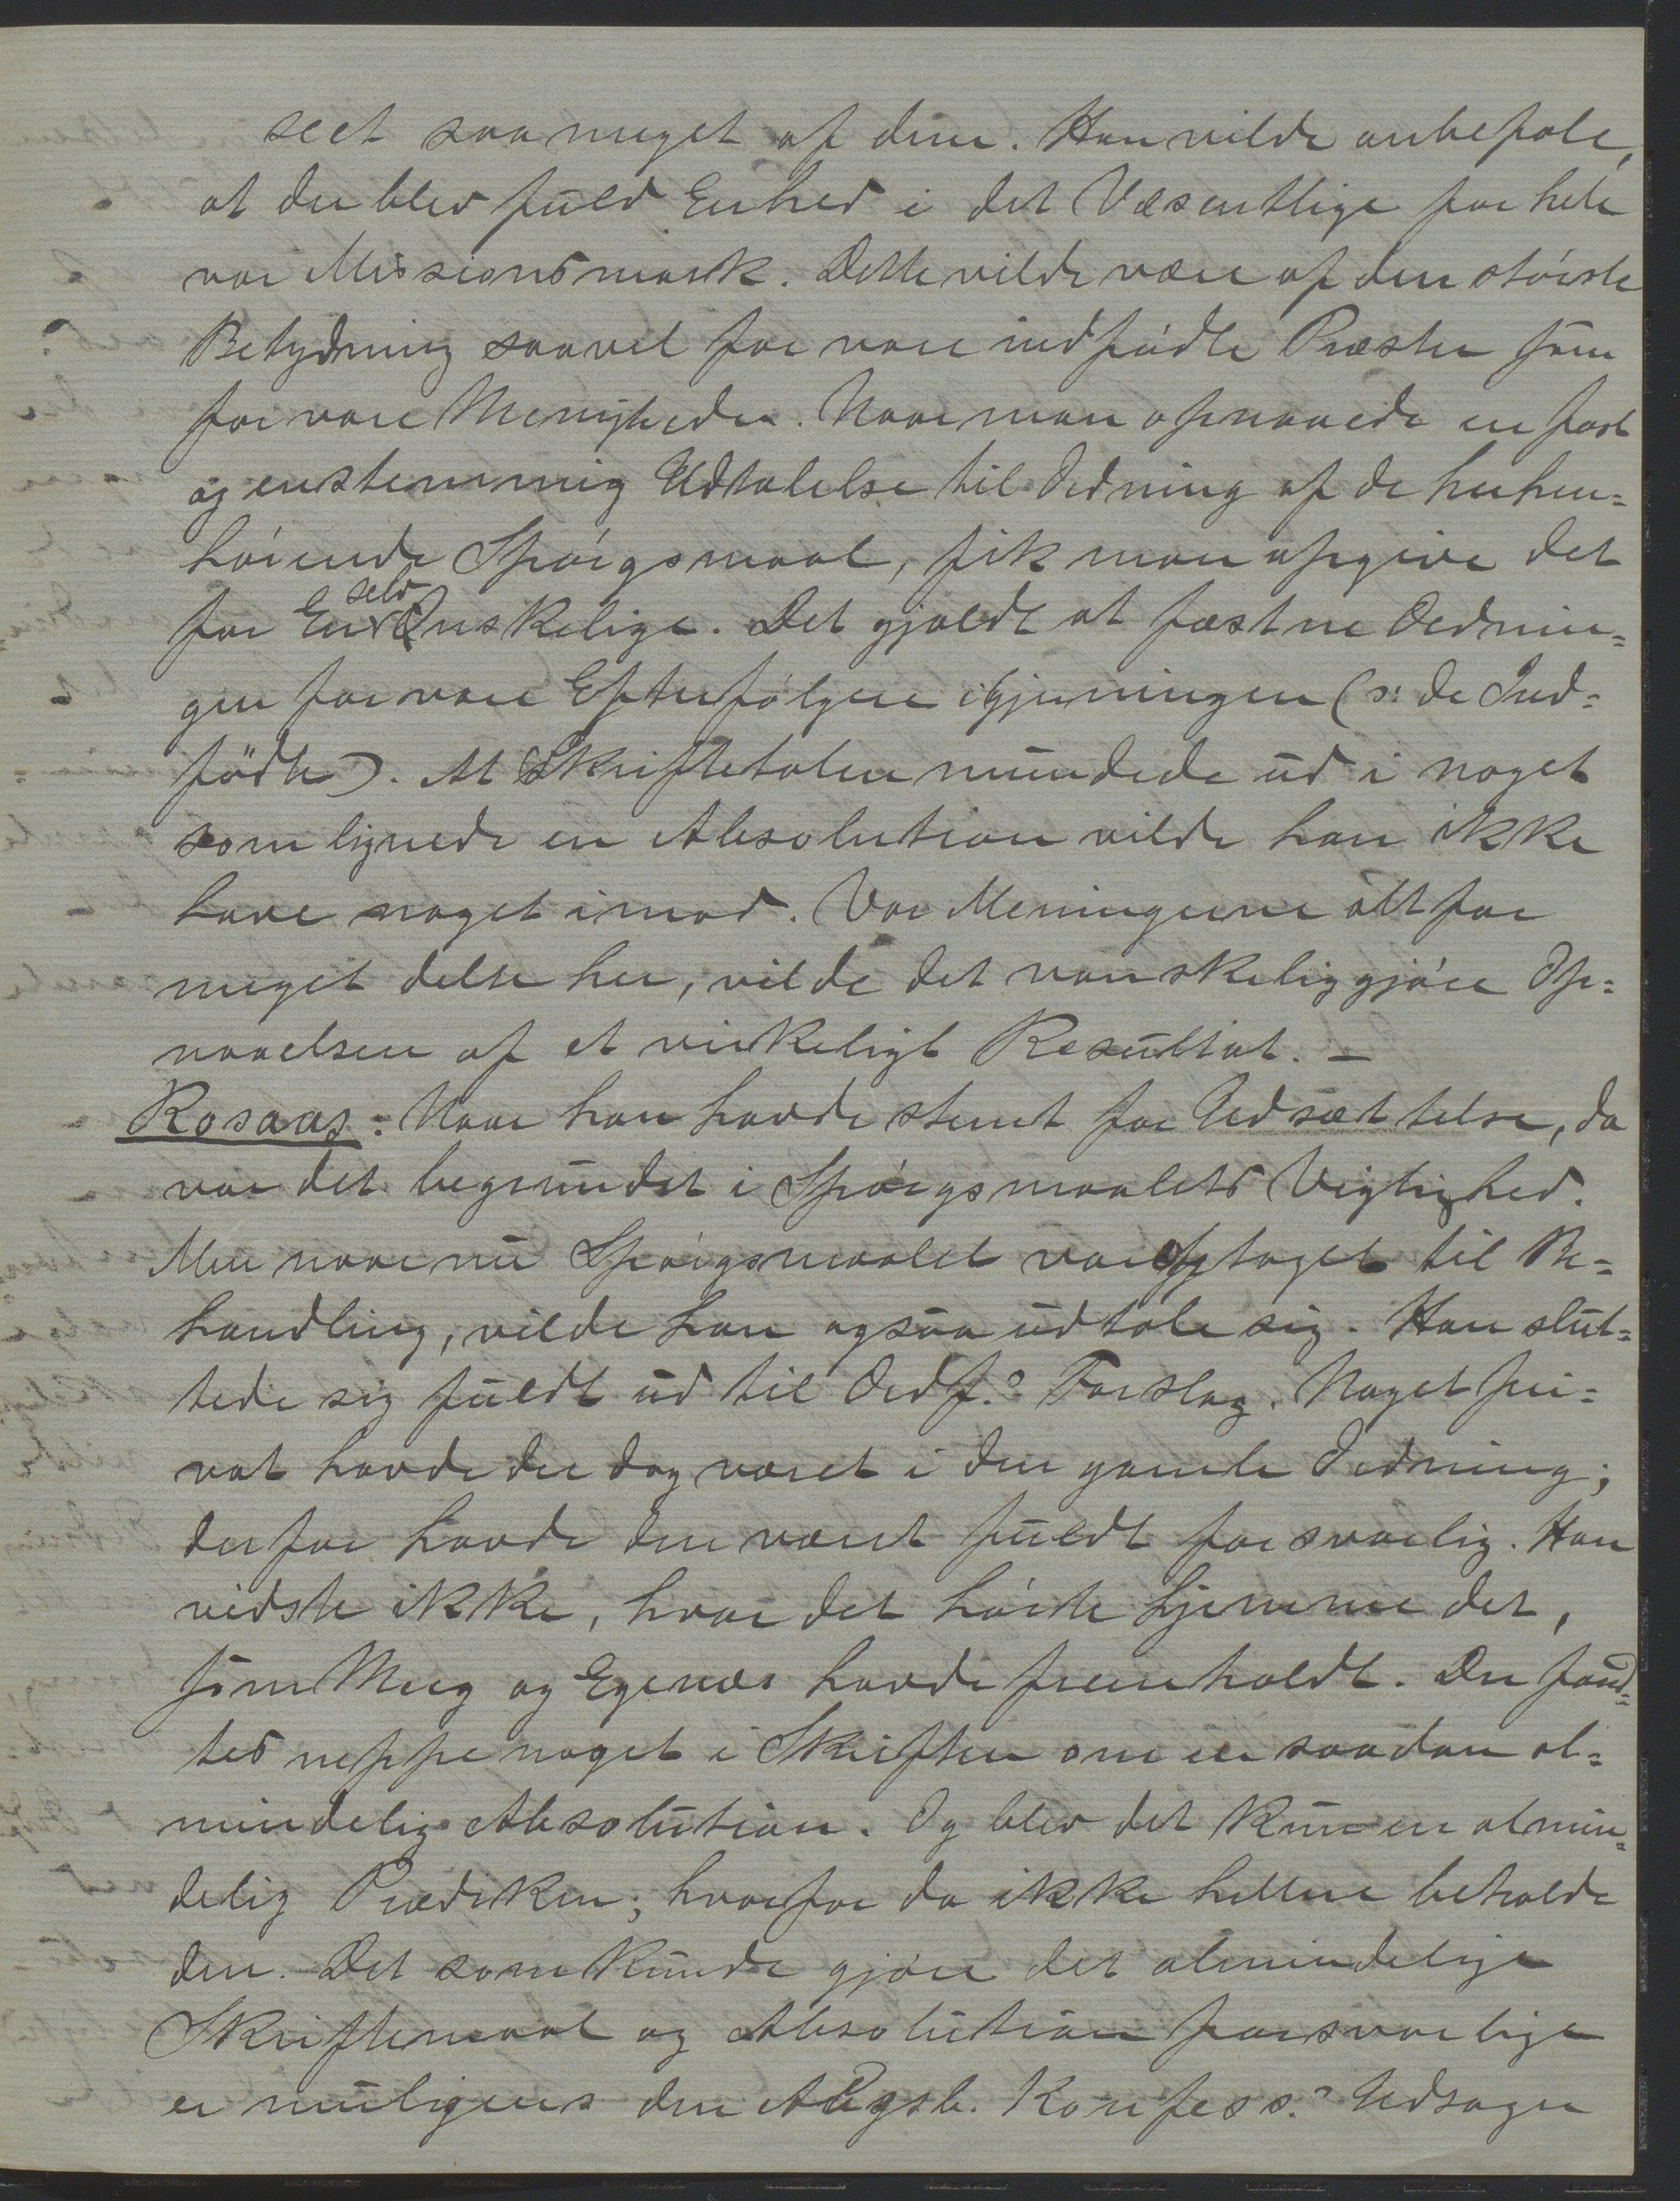 seet saa meget af den. Han vilde anbefale,
at der blev fuld Enhed i det Væsentlige for hele
vor Missionsmark. Dette vilde være af den største
Betydning saavel for vore indfødte Præster som
for vore Menigheder. Naar man opnaaede en fast
og enstemmig Udtalelse til Ordning af de herhen-
hørende Spørgsmaal, fik man opgive det
for En selv Ønskelige. Det gjaldt at fæstne Ordnin-
gen for vore Efterfølgere i Gjerningen (ɔ: de Ind-
fødte). At Skriftetalen mundede ud i noget
som lignede en Absolution vilde han ikke
have noget imod. Var Meningerne alt for
meget delte her, vilde det vanskeliggjøre Op-
naaelsen af et virkeligt Resultat. –
Rosaas: Naar han havde stemt for Udsættelse, da
var det begrundet i Spørgsmaalets Vigtighed.
Men naar nu Spørgsmaalet var optaget til Be-
handling, vilde han ogsaa udtale sig. Han slut-
tede sig fuldt ud til Ordf.s Forslag. Noget pri-
vat havde der dog været i den gamle Ordning;
derfor havde den været fuldt forsvarlig. Han
vidste ikke, hvor det hørte hjemme det,
som Meeg og Egenæs havde fremholdt. Der fand-
tes neppe noget i Skriften om en saadan al-
mindelig Absolution. Og blev det kun en almin-
delig Prædiken; hvorfor da ikke hellere beholde
den. Det som kunde gjøre det almindelige
Skriftemaal og Absolution forsvarlige
er muligens den Augsb. Konfess.s Udsagn